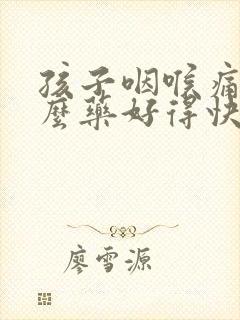 孩子咽喉痛
麼藥好得快
廖雪源